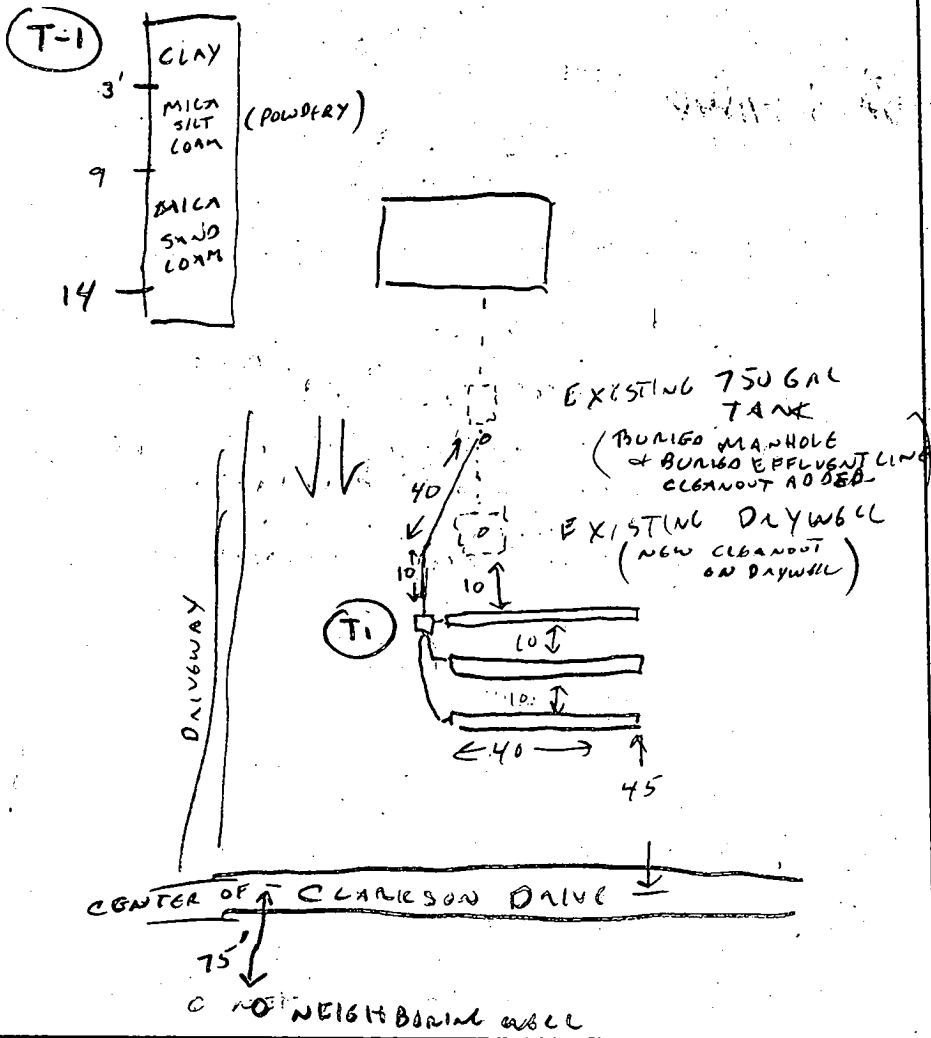 T-1
CLAY
3'
MICA
SILT
LOAM
(POWDERY)
9
MICA
SAND
LOAM
14
EXISTING 750 GAL
TANK
(BURIED MANHOLE
& BURIED EFFLUENT LINE
CLEANOUT ADDED
40
EXISTING DRYWELL
(NEW CLEANOUT
ON DRYWELL)
10
10
T1
10
10
40
45
DRIVEWAY
CENTER OF CLARKSON DRIVE
75'
NEIGHBORING WELL